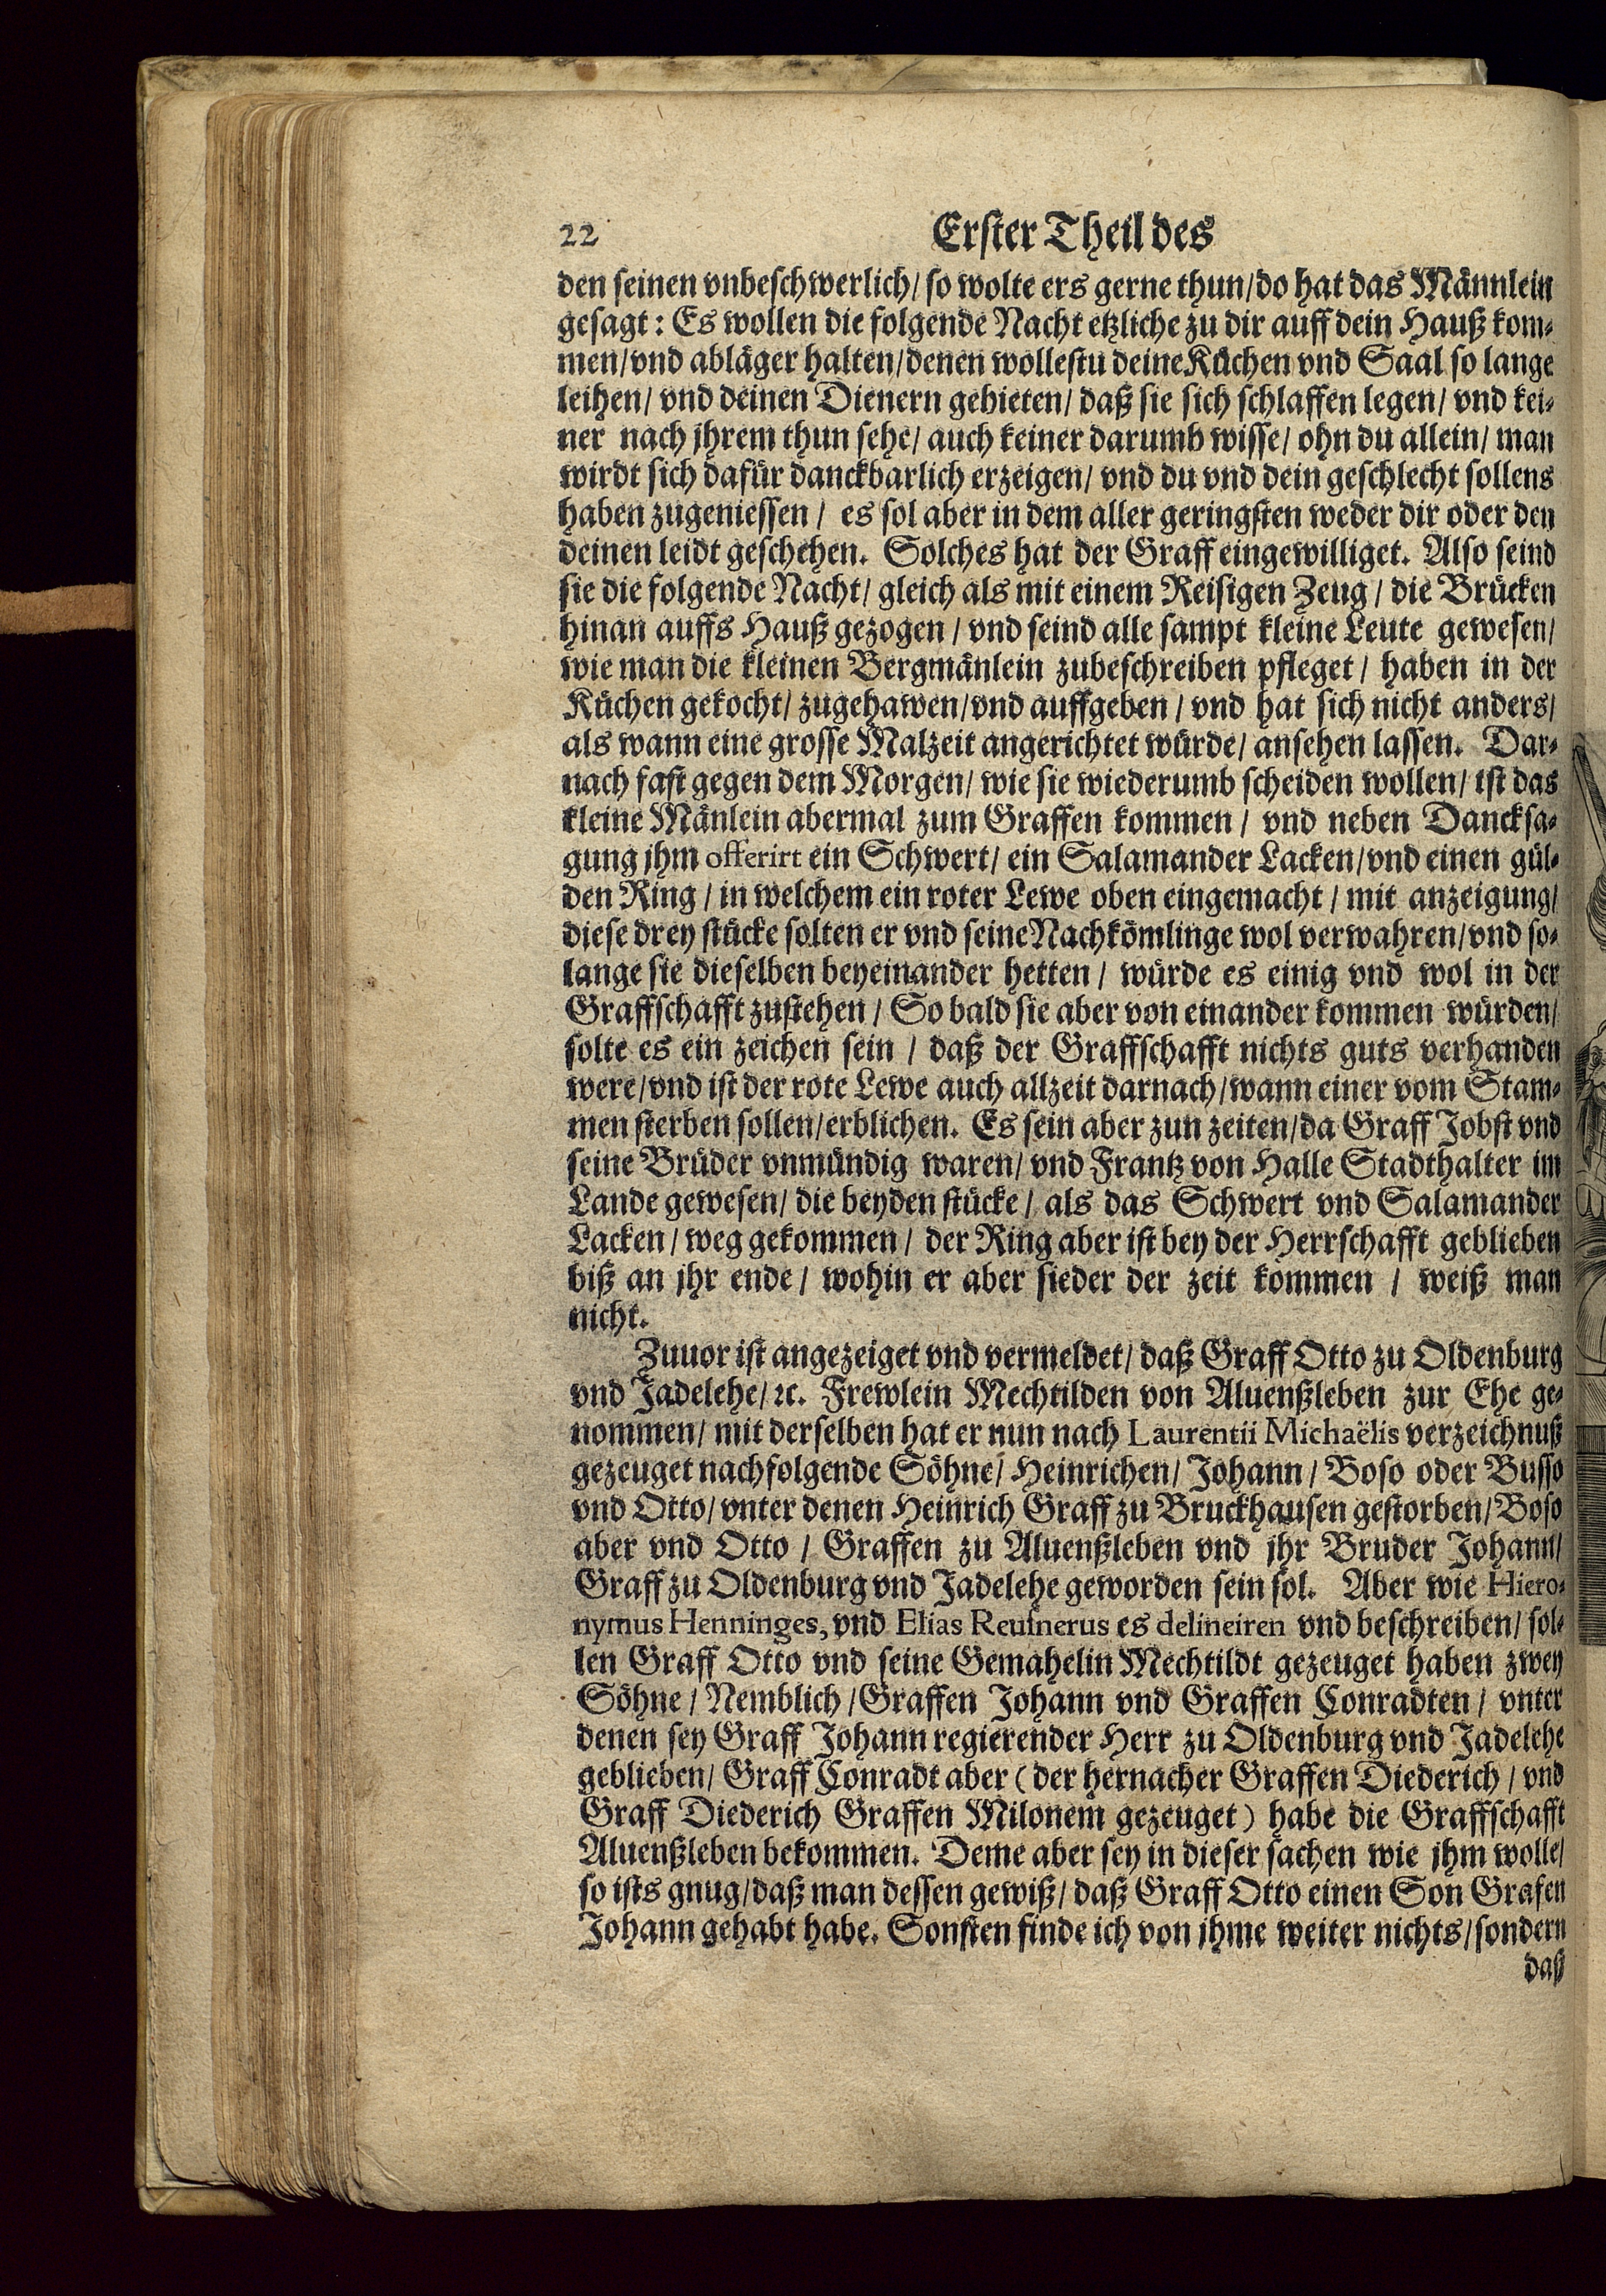 22 Erster Theil des
den seinen vnbeschwerlich/ so wolte ers gerne thun/ do hat das Männlein
gesagt: Es wollen die folgende Nacht etzliche zu dir auff dein Hauß kom-
men/ vnd abläger halten/ denen wollestu deine Küchen vnd Saal so lange
leihen/ vnd deinen Dienern gebieten/ daß sie sich schlaffen legen/ vnd kei-
ner nach jhrem thun sehe/ auch keiner darumb wisse/ ohn du allein/ man
wirdt sich dafür danckbarlich erzeigen/ vnd du vnd dein geschlecht sollens
haben zugeniessen / es sol aber in dem aller geringsten weder dir oder den
deinen leidt geschehen. Solches hat der Graff eingewilliget. Also seind
sie die folgende Nacht/ gleich als mit einem Reisigen Zeug / die Brücken
hinan auffs Hauß gezogen / vnd seind alle sampt kleine Leute gewesen/
wie man die kleinen Bergmänlein zubeschreiben pfleget / haben in der
Küchen gekocht/ zugehawen/ vnd auffgeben / vnd hat sich nicht anders/
als wann eine grosse Malzeit angerichtet würde/ ansehen lassen. Dar-
nach fast gegen dem Morgen/ wie sie wiederumb scheiden wollen/ ist das
kleine Mänlein abermal zum Graffen kommen / vnd neben Dancksa-
gung jhm offerirt ein Schwert/ ein Salamander Lacken/ vnd einen gül-
den Ring / in welchem ein roter Lewe oben eingemacht / mit anzeigung/
diese drey stücke solten er vnd seine Nachkömlinge wol verwahren/ vnd so-
lange sie dieselben beyeinander hetten / würde es einig vnd wol in der
Graffschafft zustehen / So bald sie aber von einander kommen würden/
solte es ein zeichen sein / daß der Graffschafft nichts guts verhanden
were/ vnd ist der rote Lewe auch allzeit darnach/ wann einer vom Stam-
men sterben sollen/ erblichen. Es sein aber zun zeiten/ da Graff Jobst vnd
seine Brüder vnmündig waren/ vnd Frantz von Halle Stadthalter im
Lande gewesen/ die beyden stücke / als das Schwert vnd Salamander
Lacken / weg gekommen / der Ring aber ist bey der Herrschafft geblieben
biß an jhr ende / wohin er aber sieder der zeit kommen / weiß man
nicht.
Zuuor ist angezeiget vnd vermeldet/ daß Graff Otto zu Oldenburg
vnd Jadelehe/ ꝛc. Frewlein Mechtilden von Aluenßleben zur Ehe ge-
nommen/ mit derselben hat er nun nach Laurentii Michaëlis verzeichnuß
gezeuget nachfolgende Söhne/ Heinrichen/ Johann / Boso oder Busso
vnd Otto/ vnter denen Heinrich Graff zu Bruckhausen gestorben/ Boso
aber vnd Otto / Graffen zu Aluenßleben vnd jhr Bruder Johann/
Graff zu Oldenburg vnd Jadelehe geworden sein sol. Aber wie Hiero-
nymus Henninges, vnd Elias Reusnerus es delineiren vnd beschreiben/ sol-
len Graff Otto vnd seine Gemahelin Mechtildt gezeuget haben zwey
Söhne / Nemblich / Graffen Johann vnd Graffen Conradten / vnter
denen sey Graff Johann regierender Herr zu Oldenburg vnd Jadelehe
geblieben/ Graff Conradt aber (der hernacher Graffen Diederich / vnd
Graff Diederich Graffen Milonem gezeuget) habe die Graffschafft
Aluenßleben bekommen. Deme aber sey in dieser sachen wie jhm wolle/
so ists gnug/ daß man dessen gewiß/ daß Graff Otto einen Son Grafen
Johann gehabt habe. Sonsten finde ich von jhme weiter nichts/ sondern
daß